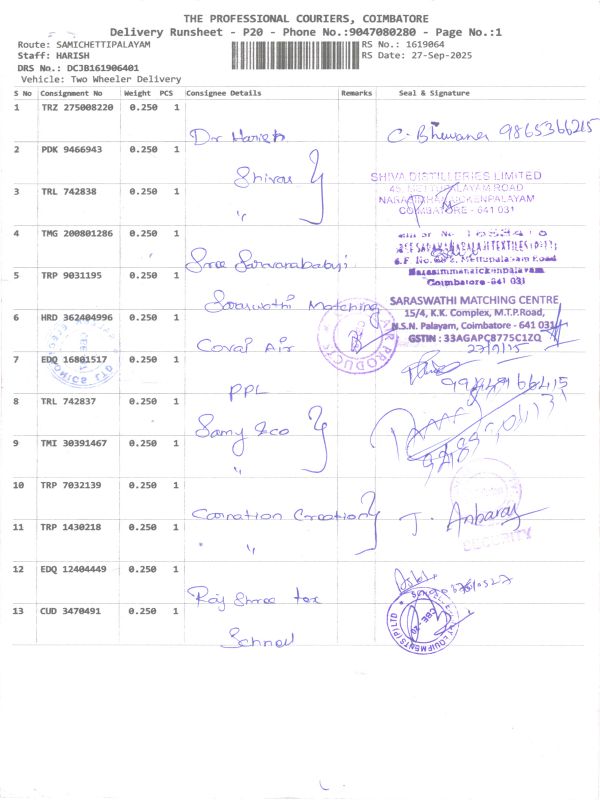 THE PROFESSIONAL COURIERS, COIMBATORE
Delivery Runsheet - P20 - Phone No.:9047080280 - Page No.:1
Route: SAMICHETTIPALAYAM
RS No.: 1619064
Staff: HARISH
RS Date: 27-Sep-2025
DRS No.: DCJB161906401
Vehicle: Two Wheeler Delivery
S No Consignment No Weight PCS Consignee Details Remarks Seal & Signature
1 TRZ 275008220 0.250 1
Dr Harish 9865366215
2 PDK 9466943 0.250 1
SHIVA DISTILLERIES LIMITED
METTUPALAYAM ROAD
3 TRL 742838 0.250 1
COIMBATORE - 641 031
"
4 TMG 200801286 0.250 1
Sree
Mettupalayam Road
Narasimmanaickenpalayam
5 TRP 9031195 0.250 1
Coimbatore-641 031
Saraswathi Matching
SARASWATHI MATCHING CENTRE
15/4, K.K. Complex, M.T.P.Road,
6 HRD 362404996 0.250 1
N.S.N. Palayam, Coimbatore - 641 031
GSTIN : 33AGAPC8775C1ZQ
Covai Air
AIR PRODUCTS
7 EDQ 16801517 0.250 1
PPL
8 TRL 742837 0.250 1
Samy &co
9 TMI 30391467 0.250 1
"
10 TRP 7032139 0.250 1
Carnation Creation J. Anbaraj
11 TRP 1430218 0.250 1
" "
SECURITY
12 EDQ 12404449 0.250 1
Raj Shree tex
13 CUD 3470491 0.250 1
CBE - 20